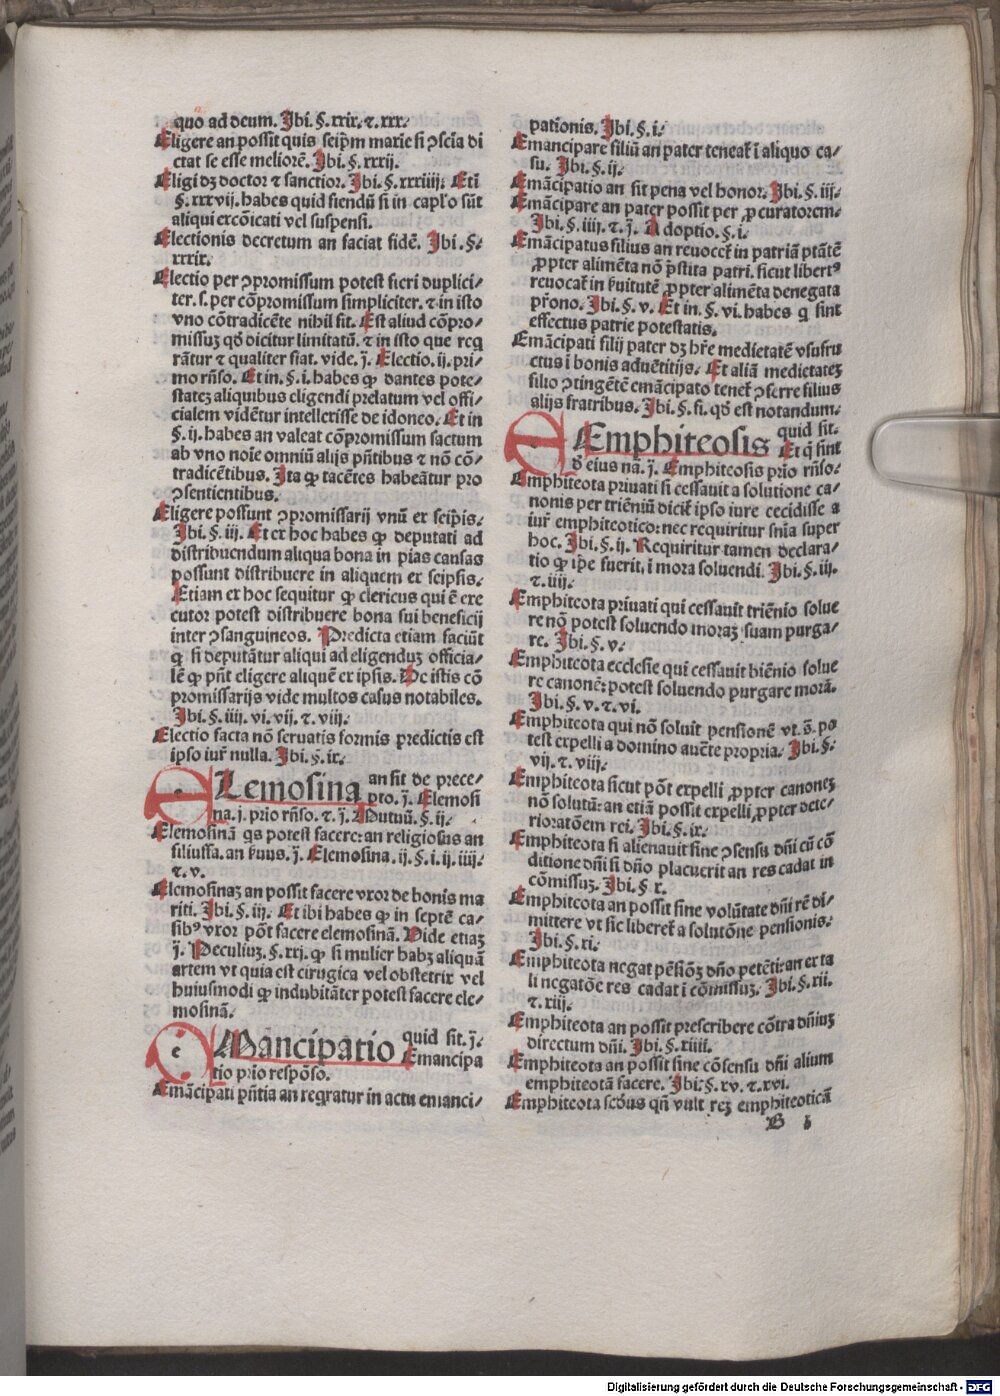 quo ad deum. Ibi. §. xxix. ⁊ xxx.
Eligere an possit quis seip̄m maxie si ꝯsciā di
ctat se esse meliorē. Ibi. §. xxxij.
Eligi dꝫ doctor ⁊ sanctior. Ibi. §. xxxiiij. Etiā
§. xxxvij. habes quid fiendū si in capl'o sūt
aliqui excōicati vel suspensi.
Electionis decretum an faciat fidē. Ibi. §.
xxxix.
Electio per ꝯpromissum potest fieri duplici/
ter. s. per cōpromissum simpliciter. ⁊ in isto
vno cōtradicēte nihil fit. Est aliud cōpro/
missuꝫ qd̄ dicitur limitatū. ⁊ in isto que req̄
rātur ⁊ qualiter fiat. vide. j̄. Electio. ij. pri/
mo rn̄so. Et in. §. i. habes ꝙ dantes pote/
statēꝫ aliquibus eligendi prelatum vel offi/
cialem vidētur intellexisse de idoneo. Et in
§. ij. habes an valeat cōpromissum factum
ab vno noīe omniū alijs pn̄tibus ⁊ nō cō/
tradicētibus. Ita ꝙ tacētes habeātur pro
ꝯsentientibus.
Eligere possunt ꝯpromissarij vnū ex seip̄is.
Ibi. §. iij. Et ex hoc habes ꝙ deputati ad
distribuendum aliqua bona in pias causas
possunt distribuere in aliquem ex seipsis.
Etiam ex hoc sequitur ꝙ clericus qui ē exe
cutor potest distribuere bona sui beneficij
inter ꝯsanguineos. Predicta etiam faciūt
ꝙ si deputātur aliqui ad eligenduꝫ officia/
lē ꝙ pn̄t eligere aliquē ex ipsis. De istis cō
promissarijs vide multos casus notabiles.
Ibi. §. iiij. vi. vij. ⁊. viij.
Electio facta nō seruatis formis predictis est
ipso iur̄ nulla. Ibi. §. ix.
ELemosina an sit de prece/
pto. j̄. Elemosi
na. j. prio rn̄so. ⁊. j̄. Mutuū. §. ij.
Elemosinā q̄s potest facere: an religiosus an
filiusfa. an ẜuus. j̄. Elemosina. ij. §. i. ij. iiij.
⁊. v.
Elemosinaꝫ an possit facere vxor de bonis ma
riti. Ibi. §. iij. Et ibi habes ꝙ in septē ca/
sibꝰ vxor pōt facere elemosinā. Vide etiaꝫ
j̄. Peculiuꝫ. §. xxj. ꝙ si mulier habꝫ aliquā
artem vt quia est cirugica vel obstetrix vel
huiusmodi ꝙ indubitāter potest facere ele/
mosinā.
EMancipatio quid sit. j̄.
Emancipa
tio prio respōso.
Emācipati pn̄tia an reqratur in actu emanci/
pationis. Ibi. §. i.
Emancipare filiū an pater teneat̄ ī aliquo ca/
su. Ibi. §. ij.
Emācipatio an sit pena vel honor. Ibi. §. iij.
Emācipare an pater possit per ꝓcuratorem.
Ibi. §. iiij. ⁊. j̄. Adoptio. §. i.
Emācipatus filius an reuocet̄ in patriā ptātē
ꝓpter alimēta nō p̄stita patri. sicut libertꝰ
reuocat̄ in ẜuitutē ꝓpter alimēta denegata
pr̄ono. Ibi. §. v. Et in. §. vi. habes q̄ sint
effectus patrie potestatis.
Emācipati filij pater dꝫ hr̄e medietatē vsufru
ctus ī bonis aduētitijs. Et aliā medietateꝫ
filio ꝯtingētē emācipato tenet̄ ꝯferre filius
alijs fratribus. Ibi. §. fi. qd̄ est notandum.
EEmphiteosis quid sit.
Et q̄ sint
d̄ eius na. j̄. Emphiteosis prio rn̄so.
Emphiteota priuati si cessauit a solutione ca/
nonis per trieniū dicit̄ ipso iure cecidisse a
iur̄ emphiteotico: nec requiritur sn̄ia super
hoc. Ibi. §. ij. Requiritur tamen declara/
tio ꝙ ip̄e fuerit, ī mora soluendi. Ibi. §. iij.
⁊. iiij.
Emphiteota priuati qui cessauit triēnio solue
re nō potest soluendo moraꝫ suam purga/
re. Ibi. §. v.
Emphiteota ecclesie qui cessauit biēnio solue
re canonē: potest soluendo purgare morā.
Ibi. §. v. ⁊. vi.
Emphiteota qui nō soluit pensionē vt. s̄. po
test expelli a domino aucte propria. Ibi. §.
vij. ⁊. viij.
Emphiteota sicut pōt expelli ꝓpter canoneꝫ
nō solutū: an etiā possit expelli ꝓpter dete/
rioratōem rei. Ibi. §. ix.
Emphiteota si alienauit sine ꝯsensu dn̄i cū cō
ditione dn̄i si dn̄o placuerit an res cadat in
cōmissuꝫ. Ibi. §. x.
Emphiteota an possit sine volūtate dn̄i rē di/
mittere vt sic liberet̄ a solutōne pensionis.
Ibi. §. xi.
Emphiteota negat pēsiōꝫ dn̄o petēti: an ex ta
li negatōe res cadat ī cōmissuꝫ. Ibi. §. xij.
⁊. xiij.
Emphiteota an possit prescribere cōtra dn̄iuꝫ
directum dn̄i. Ibi. §. xiiij.
Emphiteota an possit sine cōsensu dn̄i alium
emphiteotā facere. Ibi. §. xv. ⁊. xvi.
Emphiteota scd̄us qn̄ vult reꝫ emphiteoticā
B 5
Digitalisierung gefördert durch die Deutsche Forschungsgemeinschaft - DFG